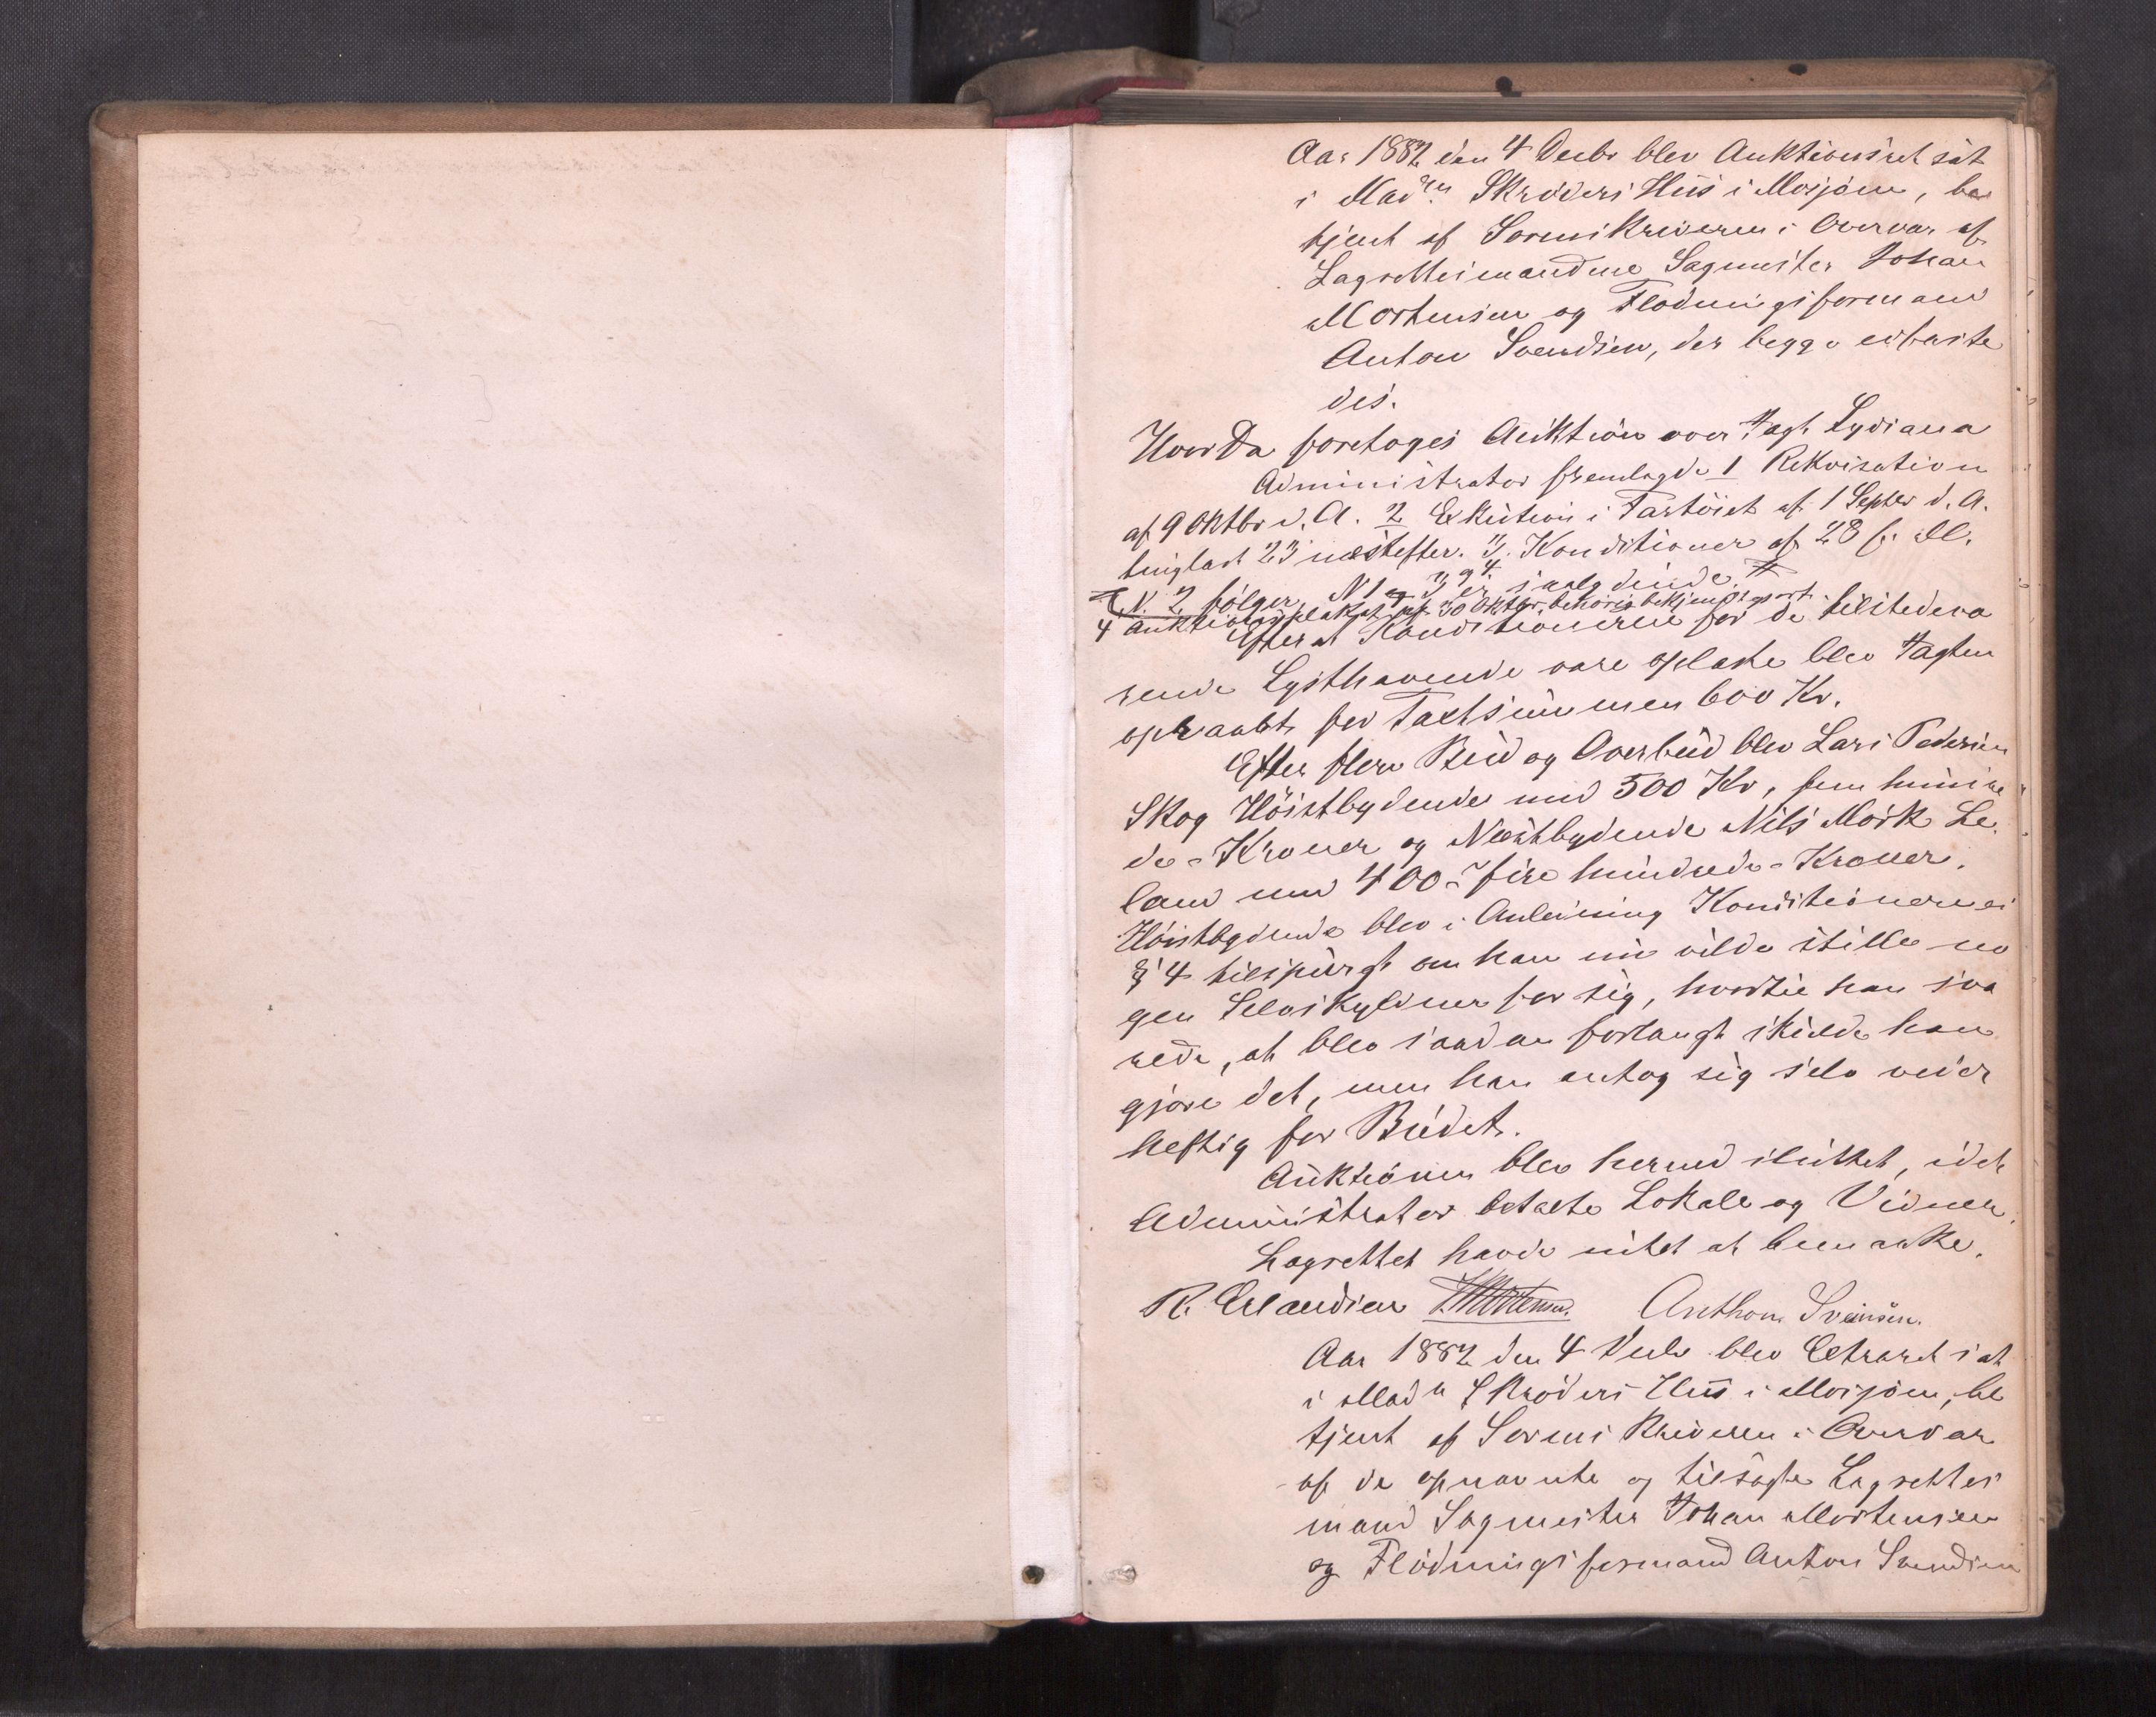 Aar 1882 den 4 Decbr blev Auktionsret sat
i Mad. Skrøders Hus i Mosjøen, be
tjent af Sorenskriveren i Overvær af
Lagrettesmændene Sagmester Johan
Mortensen og Flødningsformand
Anton Svendsen, der begge edfæste
des.
Hvorda foretoges Auktion over Jagt Lydiana
Administrator fremlagde 1 Rekvisition
af 9 Oktbr d. A. 2 Exekution i Fartøiet af 1 Septbr d. A.
tinglæst 23 næstefter. 3, Konditioner af 28 f. M.
N. 2 følger, N 1 og 3 og 4 er saalydende.
4 Auktionsplakat af 30 Oktbr. behørig bekjendtgjort.
Efterat Konditionerne for de tilstedevæ
rende Lysthavende vare oplæste blev Jagten
opraabt for Taxtsummen 600 Kr.
Efter flere Bud og Overbud blev Lars Pedersen
Skog Høistbydende med 500 Kr, fem hundre
de - Kroner og Næstbydende Nils Mørk Le
land med 400 - fire hundrede - Kroner.
Høistbydende blev i Anledning Konditionernes
§ 4 tilspurgt om han nu vilde stille no
gen Selvskyldner for sig, hvortil han sva
rede, at blev saadan forlangt skulde han
gjøre det, men han antog sig selv veder
heftig for Budet.
Auktionen blev hermed sluttet, idet
Administrator betalte Lokale og Vidner.
Lagrettet havde intet at bemærke.
R. Erlandsen J. Mortensen. Anthon Svensen.
Aar 1882 den 4 Decbr blev Extraret sat
i Mad. Skrøders Hus i Mosjøen, be
tjent af Sorenskriveren i Overvær
af de opnævnte og tilsagte Lagrettes
mænd Sagmester Johan Mortensen
og Flødningsformand Anton Svendsen